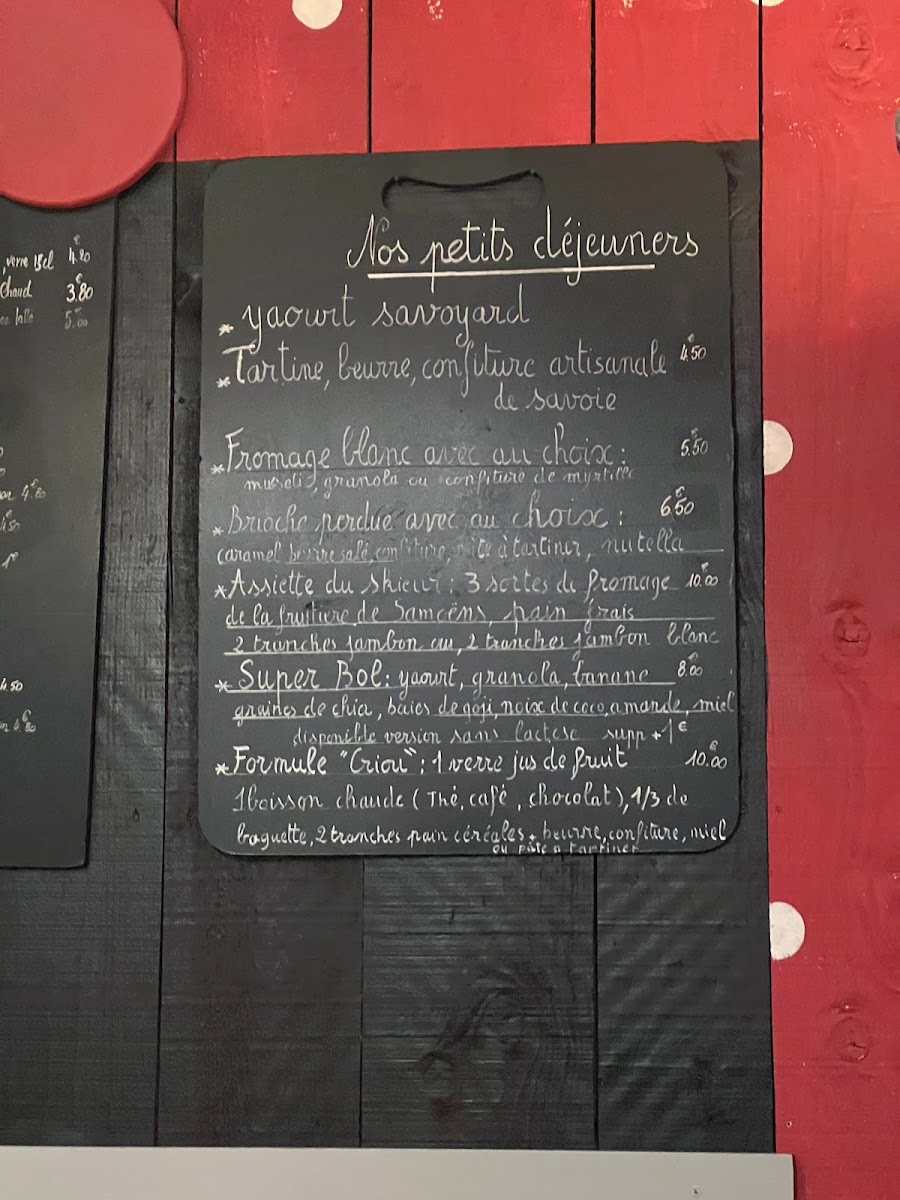 , verre 15cl 4.€20
Chaud 3.€80
5.€00
4.€80
4.50
4.50
Nos petits déjeuners
* yaourt savoyard
* Tartine, beurre, confiture artisanale 4.€50
de savoie
* Fromage blanc avec au choix : 5.€50
muesli, granola ou confiture de myrtille
* Brioche perdue avec au choix : 6.€50
caramel beurre salé, confiture, pâte à tartiner, nutella
* Assiette du skieur : 3 sortes de fromage 10.€00
de la fruitière de Samoëns, pain frais
2 tranches jambon cru, 2 tranches jambon blanc
* Super Bol : yaourt, granola, banane 8.€00
graines de chia, baies de goji, noix de coco, amande, miel
disponible version sans lactose supp + 1€
* Formule "Criou" : 1 verre jus de fruit 10.€00
1 boisson chaude ( Thé, café, chocolat), 1/3 de
baguette, 2 tranches pain céréales + beurre, confiture, miel
ou pâte à tartiner